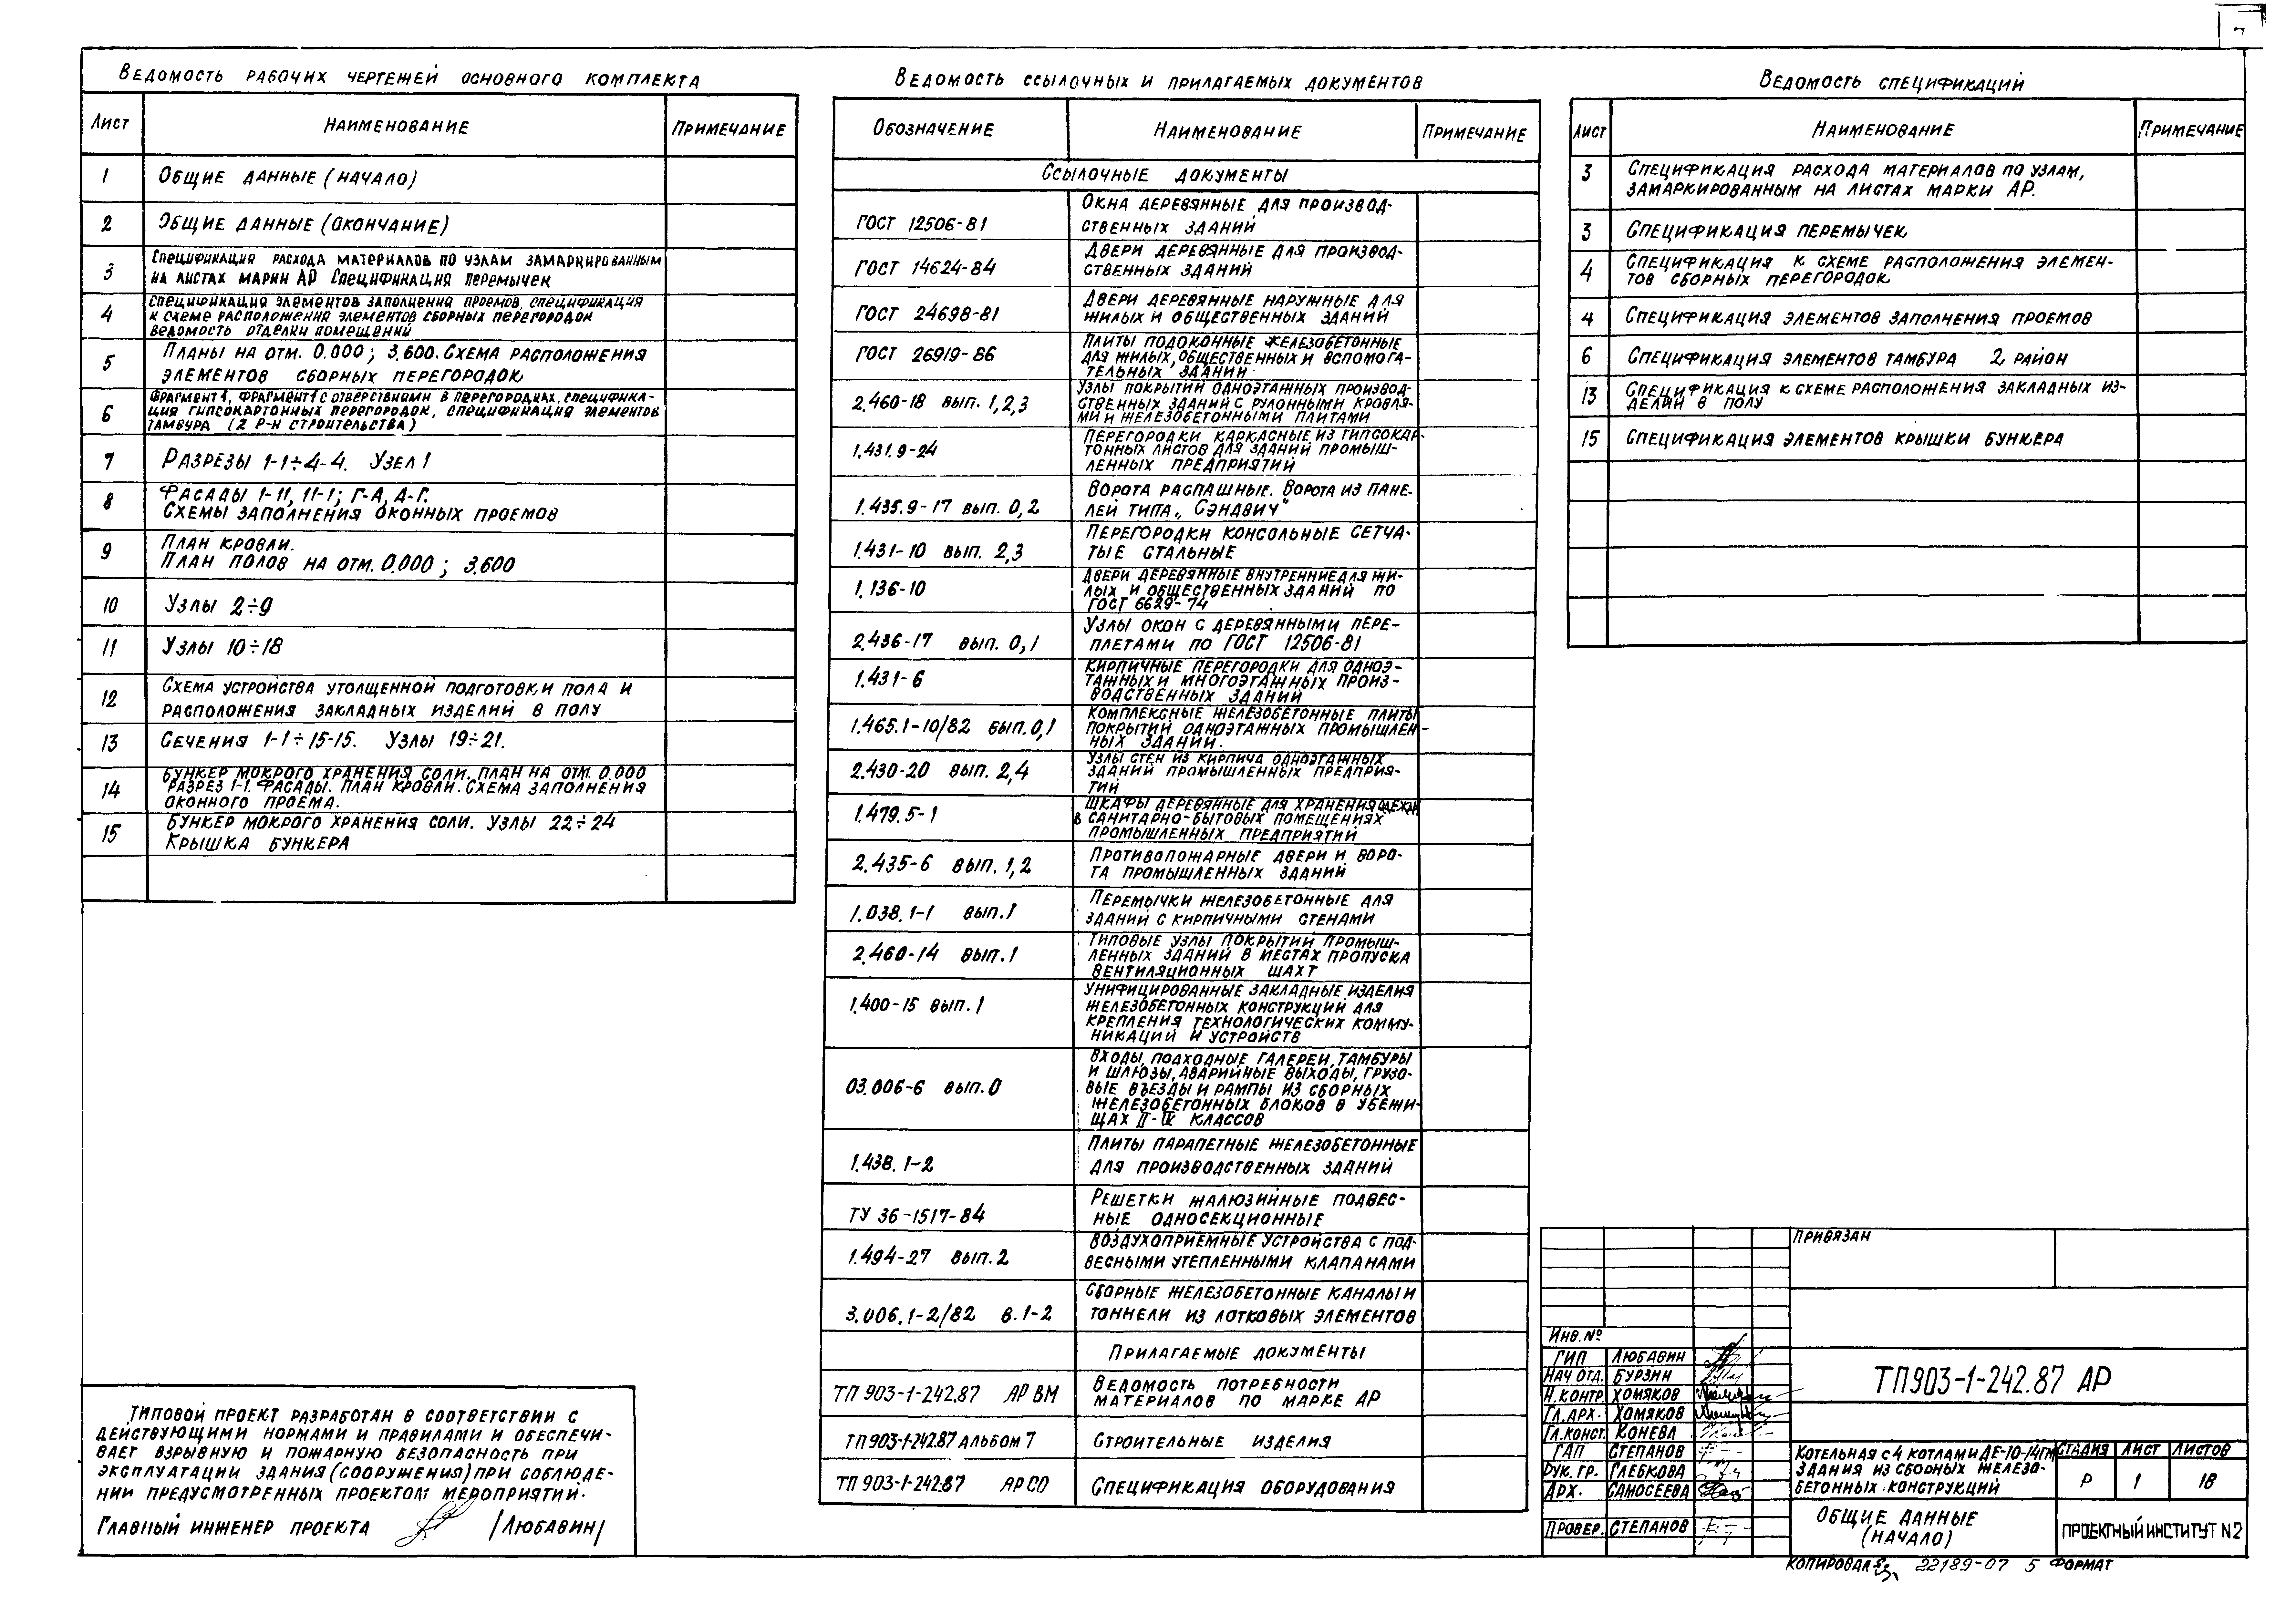 Ведомость рабочих чертежей основного комплекта
Лист Наименование Примечание
1 Общие данные (начало)
2 Общие данные (окончание)
3 Спецификация расхода материалов по узлам замаркированным
на листах марки АР Спецификация перемычек
4 Спецификация элементов заполнения проемов, спецификация
к схеме расположения элементов сборных перегородок
ведомость отделки помещений
5 Планы на отм. 0.000; 3.600. Схема расположения
элементов сборных перегородок
6 Фрагмент 1, фрагмент 1 с отверстиями в перегородках, специфика-
ция гипсокартонных перегородок, спецификация элементов
тамбура (2 р-н строительства)
7 Разрезы 1-1÷4-4. Узел 1
8 Фасады 1-11, 11-1; Г-А, А-Г.
Схемы заполнения оконных проемов
9 План кровли.
План полов на отм. 0.000; 3.600
10 Узлы 2÷9
11 Узлы 10÷18
12 Схема устройства утолщенной подготовки пола и
расположения закладных изделий в полу
13 Сечения 1-1÷15-15. Узлы 19÷21.
14 Бункер мокрого хранения соли. План на отм. 0.000
Разрез 1-1. Фасады. План кровли. Схема заполнения
оконного проема.
15 Бункер мокрого хранения соли. Узлы 22÷24
Крышка бункера
Типовой проект разработан в соответствии с
действующими нормами и правилами и обеспечи-
вает взрывную и пожарную безопасность при
эксплуатации здания (сооружения) при соблюде-
нии предусмотренных проектом мероприятий.
Главный инженер проекта /Любавин/
Ведомость ссылочных и прилагаемых документов
Обозначение Наименование Примечание
Ссылочные документы
ГОСТ 12506-81 Окна деревянные для производ-
ственных зданий
ГОСТ 14624-84 Двери деревянные для производ-
ственных зданий
ГОСТ 24698-81 Двери деревянные наружные для
жилых и общественных зданий
ГОСТ 26919-86 Плиты подоконные железобетонные
для жилых, общественных и вспомога-
тельных зданий
2.460-18 вып. 1,2,3 Узлы покрытий одноэтажных производ-
ственных зданий с рулонными кровля-
ми и железобетонными плитами
1.431.9-24 Перегородки каркасные из гипсокар-
тонных листов для зданий промыш-
ленных предприятий
1.435.9-17 вып. 0,2 Ворота распашные. Ворота из пане-
лей типа „Сэндвич"
1.431-10 вып. 2,3 Перегородки консольные сетча-
тые стальные
1.136-10 Двери деревянные внутренние для жи-
лых и общественных зданий по
ГОСТ 6629-74
2.436-17 вып. 0,1 Узлы окон с деревянными пере-
плетами по ГОСТ 12506-81
1.431-6 Кирпичные перегородки для одноэ-
тажных и многоэтажных произ-
водственных зданий
1.465.1-10/82 вып. 0,1 Комплексные железобетонные плиты
покрытий одноэтажных промышлен-
ных зданий.
2.430-20 вып. 2,4 Узлы стен из кирпича одноэтажных
зданий промышленных предприя-
тий
1.479.5-1 Шкафы деревянные для хранения одежды
в санитарно-бытовых помещениях
промышленных предприятий
2.435-6 вып. 1,2 Противопожарные двери и воро-
та промышленных зданий
1.038.1-1 вып. 1 Перемычки железобетонные для
зданий с кирпичными стенами
2.460-14 вып. 1 Типовые узлы покрытий промыш-
ленных зданий в местах пропуска
вентиляционных шахт
1.400-15 вып. 1 Унифицированные закладные изделия
железобетонных конструкций для
крепления технологических комму-
никаций и устройств
03.006-6 вып. 0 Входы, подходные галереи, тамбуры
и шлюзы, аварийные выходы, грузо-
вые въезды и рампы из сборных
железобетонных блоков в убежи-
щах II-IV классов
1.438.1-2 Плиты парапетные железобетонные
для производственных зданий
ТУ 36-1517-84 Решетки жалюзийные подвес-
ные односекционные
1.494-27 вып. 2 Воздухоприемные устройства с под-
весными утепленными клапанами
3.006.1-2/82 в. 1-2 Сборные железобетонные каналы и
тоннели из лотковых элементов
Прилагаемые документы
ТП 903-1-242.87 АР ВМ Ведомость потребности
материалов по марке АР
ТП 903-1-242.87 Альбом 7 Строительные изделия
ТП 903-1-242.87 АР СО Спецификация оборудования
Ведомость спецификаций
Лист Наименование Примечание
3 Спецификация расхода материалов по узлам,
замаркированным на листах марки АР.
3 Спецификация перемычек
4 Спецификация к схеме расположения элемен-
тов сборных перегородок
4 Спецификация элементов заполнения проемов
6 Спецификация элементов тамбура 2 район
13 Спецификация к схеме расположения закладных из-
делий в полу
15 Спецификация элементов крышки бункера
Привязан
Инв. №
ГИП Любавин
Нач отд. Бурзин
Н.контр. Хомяков
Гл.арх. Хомяков
Гл.конст. Конева
ГАП Степанов
Рук. гр. Глебкова
Арх. Самосеева
Провер. Степанов
ТП 903-1-242.87 АР
Котельная с 4 котлами ДЕ-10-14ГМ
Здания из сборных железо-
бетонных конструкций
Стадия Лист Листов
Р 1 18
Общие данные
(начало)
Проектный институт N2
Копировал 22189-07 5 Формат